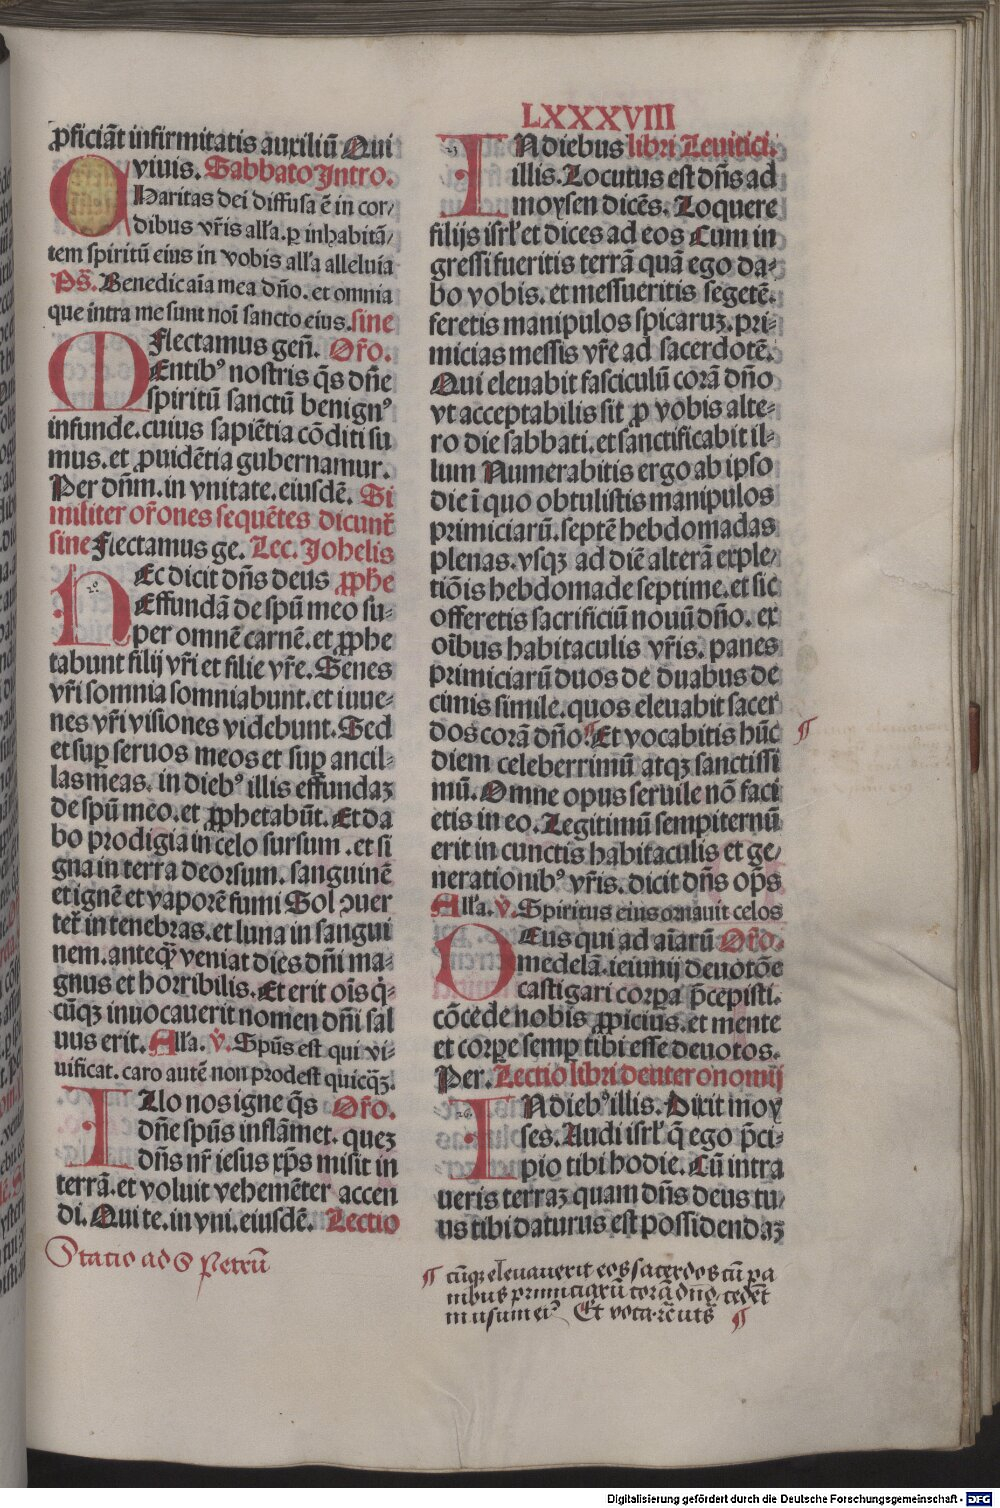 LXXXVIII
ꝓficiāt infirmitatis auxiliū Qui
viuis. Sabbato Intro.
CHaritas dei diffusa ē in cor/
dibus vr̄is alľa. ꝑ inhabitā/
tem spiritū eius in vobis alľa alleluia
Ps̄. Benedic aīa mea dn̄o. et omnia
que intra me sunt noī sancto eius. sine
Flectamus gen̄. Or̄o.
MEntibꝰ nostris q̄s dn̄e
spiritū sanctū benignꝰ
infunde. cuius sapiētia cōditi su
mus. et ꝓuidētia gubernamur.
Per dn̄m. in vnitate. eiusdē. Si
militer or̄ones sequētes dicunt̄
sine Flectamus ge. Lec. Johelis
HEc dicit dn̄s deus ꝓph̄e
Effundā de spū meo su-
per omnē carnē. et ꝓphe
tabunt filij vr̄i et filie vr̄e. Senes
vr̄i somnia somniabunt. et iuue-
nes vr̄i visiones videbunt. Sed
et suꝑ seruos meos et suꝑ ancil-
las meas. in diebꝰ illis effundaꝫ
de spū meo. et ꝓphetabūt. Et da
bo prodigia in celo sursum. et si
gna in terra deorsum. sanguinē
et ignē et vaporē fumi Sol ꝯuer
tet̄ in tenebras. et luna in sangui
nem. anteq̄ȝ veniat dies dn̄i ma-
gnus et horribilis. Et erit oīs q̄-
cūqꝫ inuocauerit nomen dn̄i sal
uus erit. Alľa. v̄. Spūs est qui vi-
uificat. caro autē non prodest quicq̄ꝫ.
ILlo nos igne q̄s Or̄o.
dn̄e spūs inflāmet. queꝫ
dn̄s nr̄ iesus xp̄s misit in
terrā. et voluit vehemēter accen
di. Qui te. in vni. eiusdē. Lectio
Statio ad S Petrū
IN diebus libri Leuitici.
illis. Locutus est dn̄s ad
moysen dicēs. Loquere
filijs isrľ et dices ad eos Cum in
gressi fueritis terrā quā ego da-
bo vobis. et messueritis segetē.
feretis manipulos spicaruꝫ. pri-
micias messis vr̄e ad sacerdotē.
Qui eleuabit fasciculū corā dn̄o
vt acceptabilis sit ꝓ vobis alte-
ro die sabbati. et sanctificabit il-
lum Numerabitis ergo ab ipso
die ī quo obtulistis manipulos
primiciarū. septē hebdomadas
plenas. vsqꝫ ad diē alterā exple/
tiōis hebdomade septime. et sic
offeretis sacrificiū nouū dn̄o. ex
oībus habitaculis vr̄is. panes
primiciarū duos de duabus de
cimis simile. quos eleuabit sacer
dos corā dn̄o. ¶ Et vocabitis hūc ¶
diem celeberrimū atqꝫ sanctissi
mū. Omne opus seruile nō faci
etis in eo. Legitimū sempiternū
erit in cunctis habitaculis et ge/
nerationibꝰ vr̄is. dicit dn̄s op̄s
Alľa. v̄. Spiritus eius ornauit celos
DEus qui ad aīarū Or̄o.
medelā. ieiunij deuotōe
castigari corpa p̄cepisti.
cōcede nobis ꝓpicius. et mente
et corꝑe semꝑ tibi esse deuotos.
Per. Lectio libri deuteronomij
IN diebꝰ illis. Dixit moy
ses. Audi isrľ q̄ ego p̄ci-
pio tibi hodie. Cū intra
ueris terraꝫ quam dn̄s deus tu/
us tibi daturus est possidendaꝫ
¶ cūqꝫ elevaverit eos sacerdos cū pa
nibus primiciarū corā dn̄o, cedēt
in usum eiꝰ Et voca. rc̄ uts̄ ¶
Digitalisierung gefördert durch die Deutsche Forschungsgemeinschaft - DFG